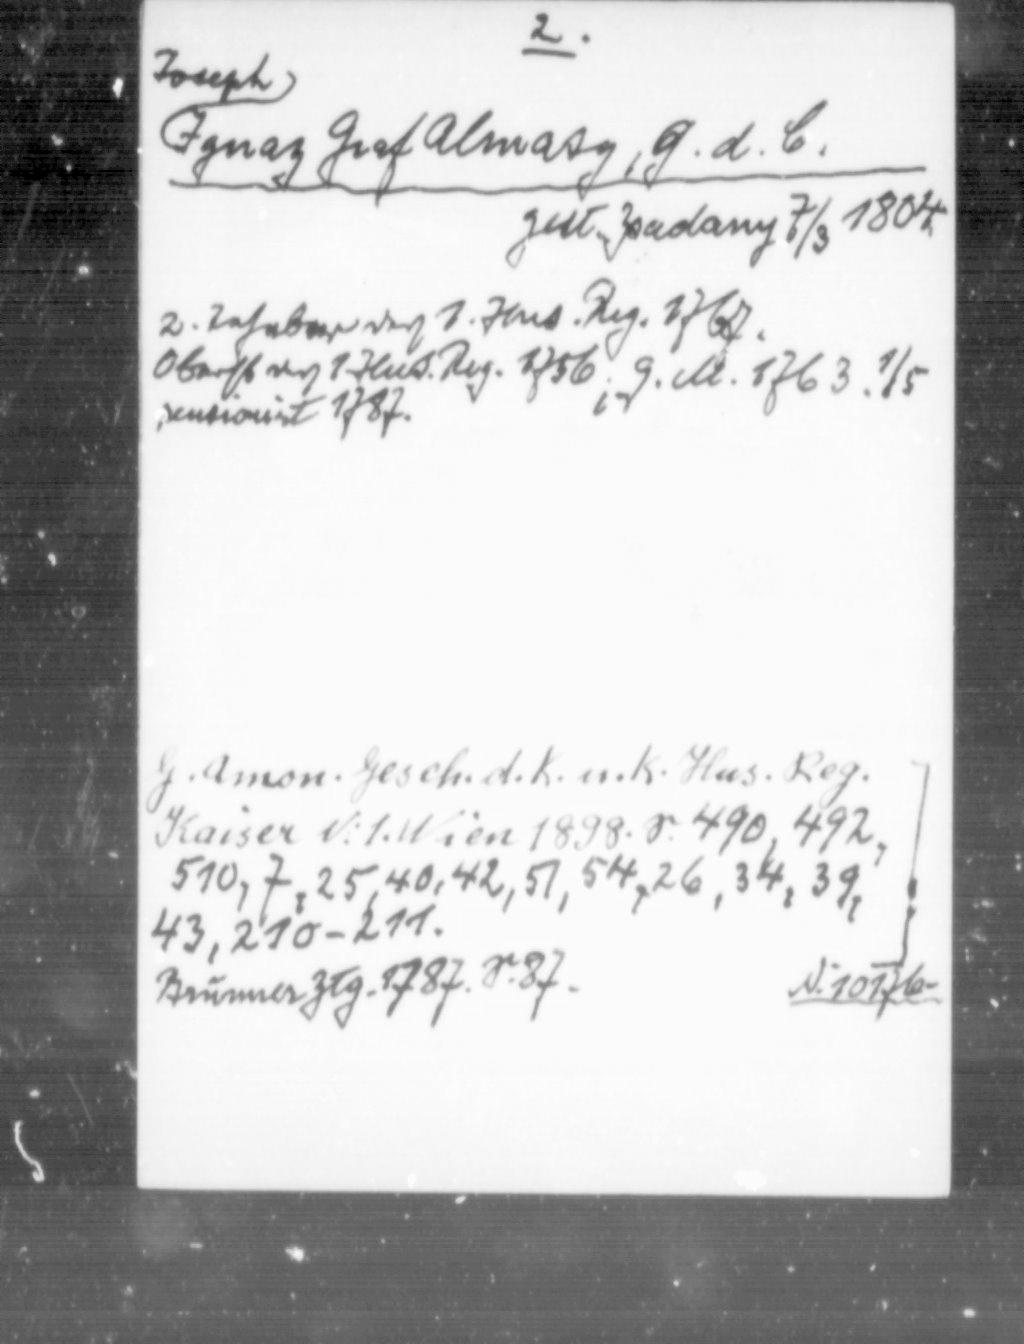 2.
Joseph
Ignaz Graf Almasy, G. d. C.
gest. Zsadany 7/3 1804
2. Inhaber des 1. Hus. Reg. 1767.
Oberst des 1 Hus. Reg. 1756; G. M. 1763. 1/5
pensionirt 1787.
G. Amon. Gesch. d. k. u. k. Hus. Reg.
Kaiser N: 1. Wien 1898. S. 490, 492,
510, 7, 25, 40, 42, 51, 54, 26, 34, 39,
43, 210-211.
Brünner Ztg. 1787. S. 87.
N: 10176